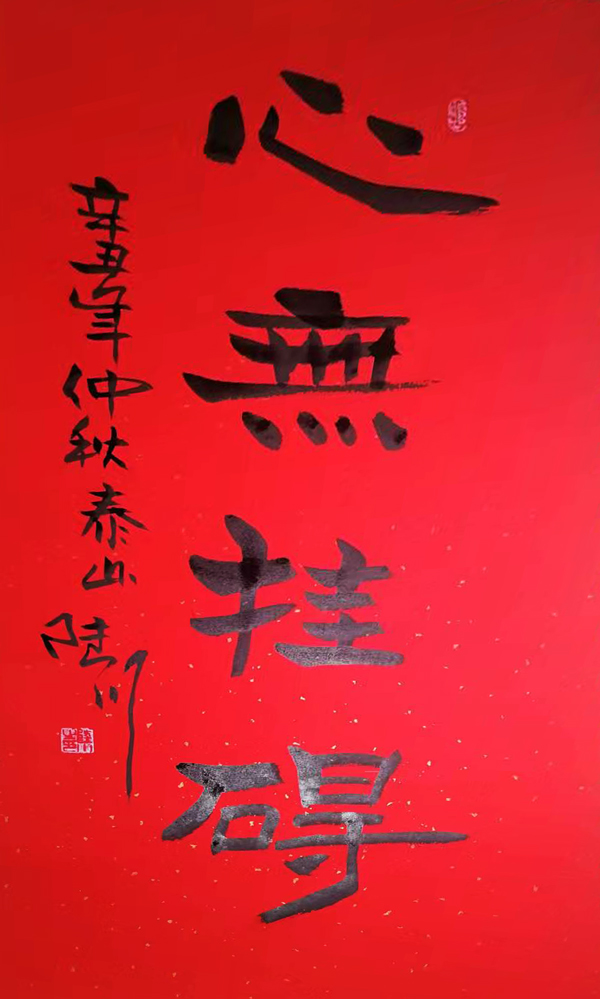 心無挂碍
辛丑年仲秋泰山陆川